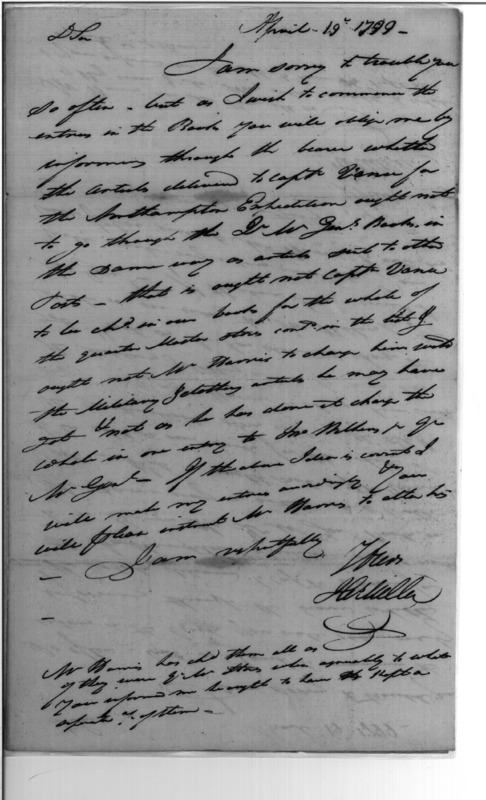 April 19th 1799 -
D Sir
I am sorry to trouble you
so often - but as I wish to commence the
entries in the Book you will oblige me by
informing through the bearer whether
the articles delivered to Capt Vance for
the Northampton Expedition ought not
to go through the Qr Mr Genl Books, in
the same way as articles sent to other
Posts - that is ought not Capt Vance
to be chd in our books for the whole of
the quarter Master stores contd in the list &
ought not Mr Harris to charge him with
the Military & clothing articles he may have
got & not as he has done it charge the
whole in one entry to Jno Wilkins Jr Qr
Mr Genl - If the above Idea is correct I
will make my entries accordingly & you
will please instruct Mr Harris to alter his
I am respectfully
Yours
J Miller
Mr Harris has chd them all as
if they were Qr Mr stores when agreeably to what
you informed me he ought to have kept a
seperate a/c of them -